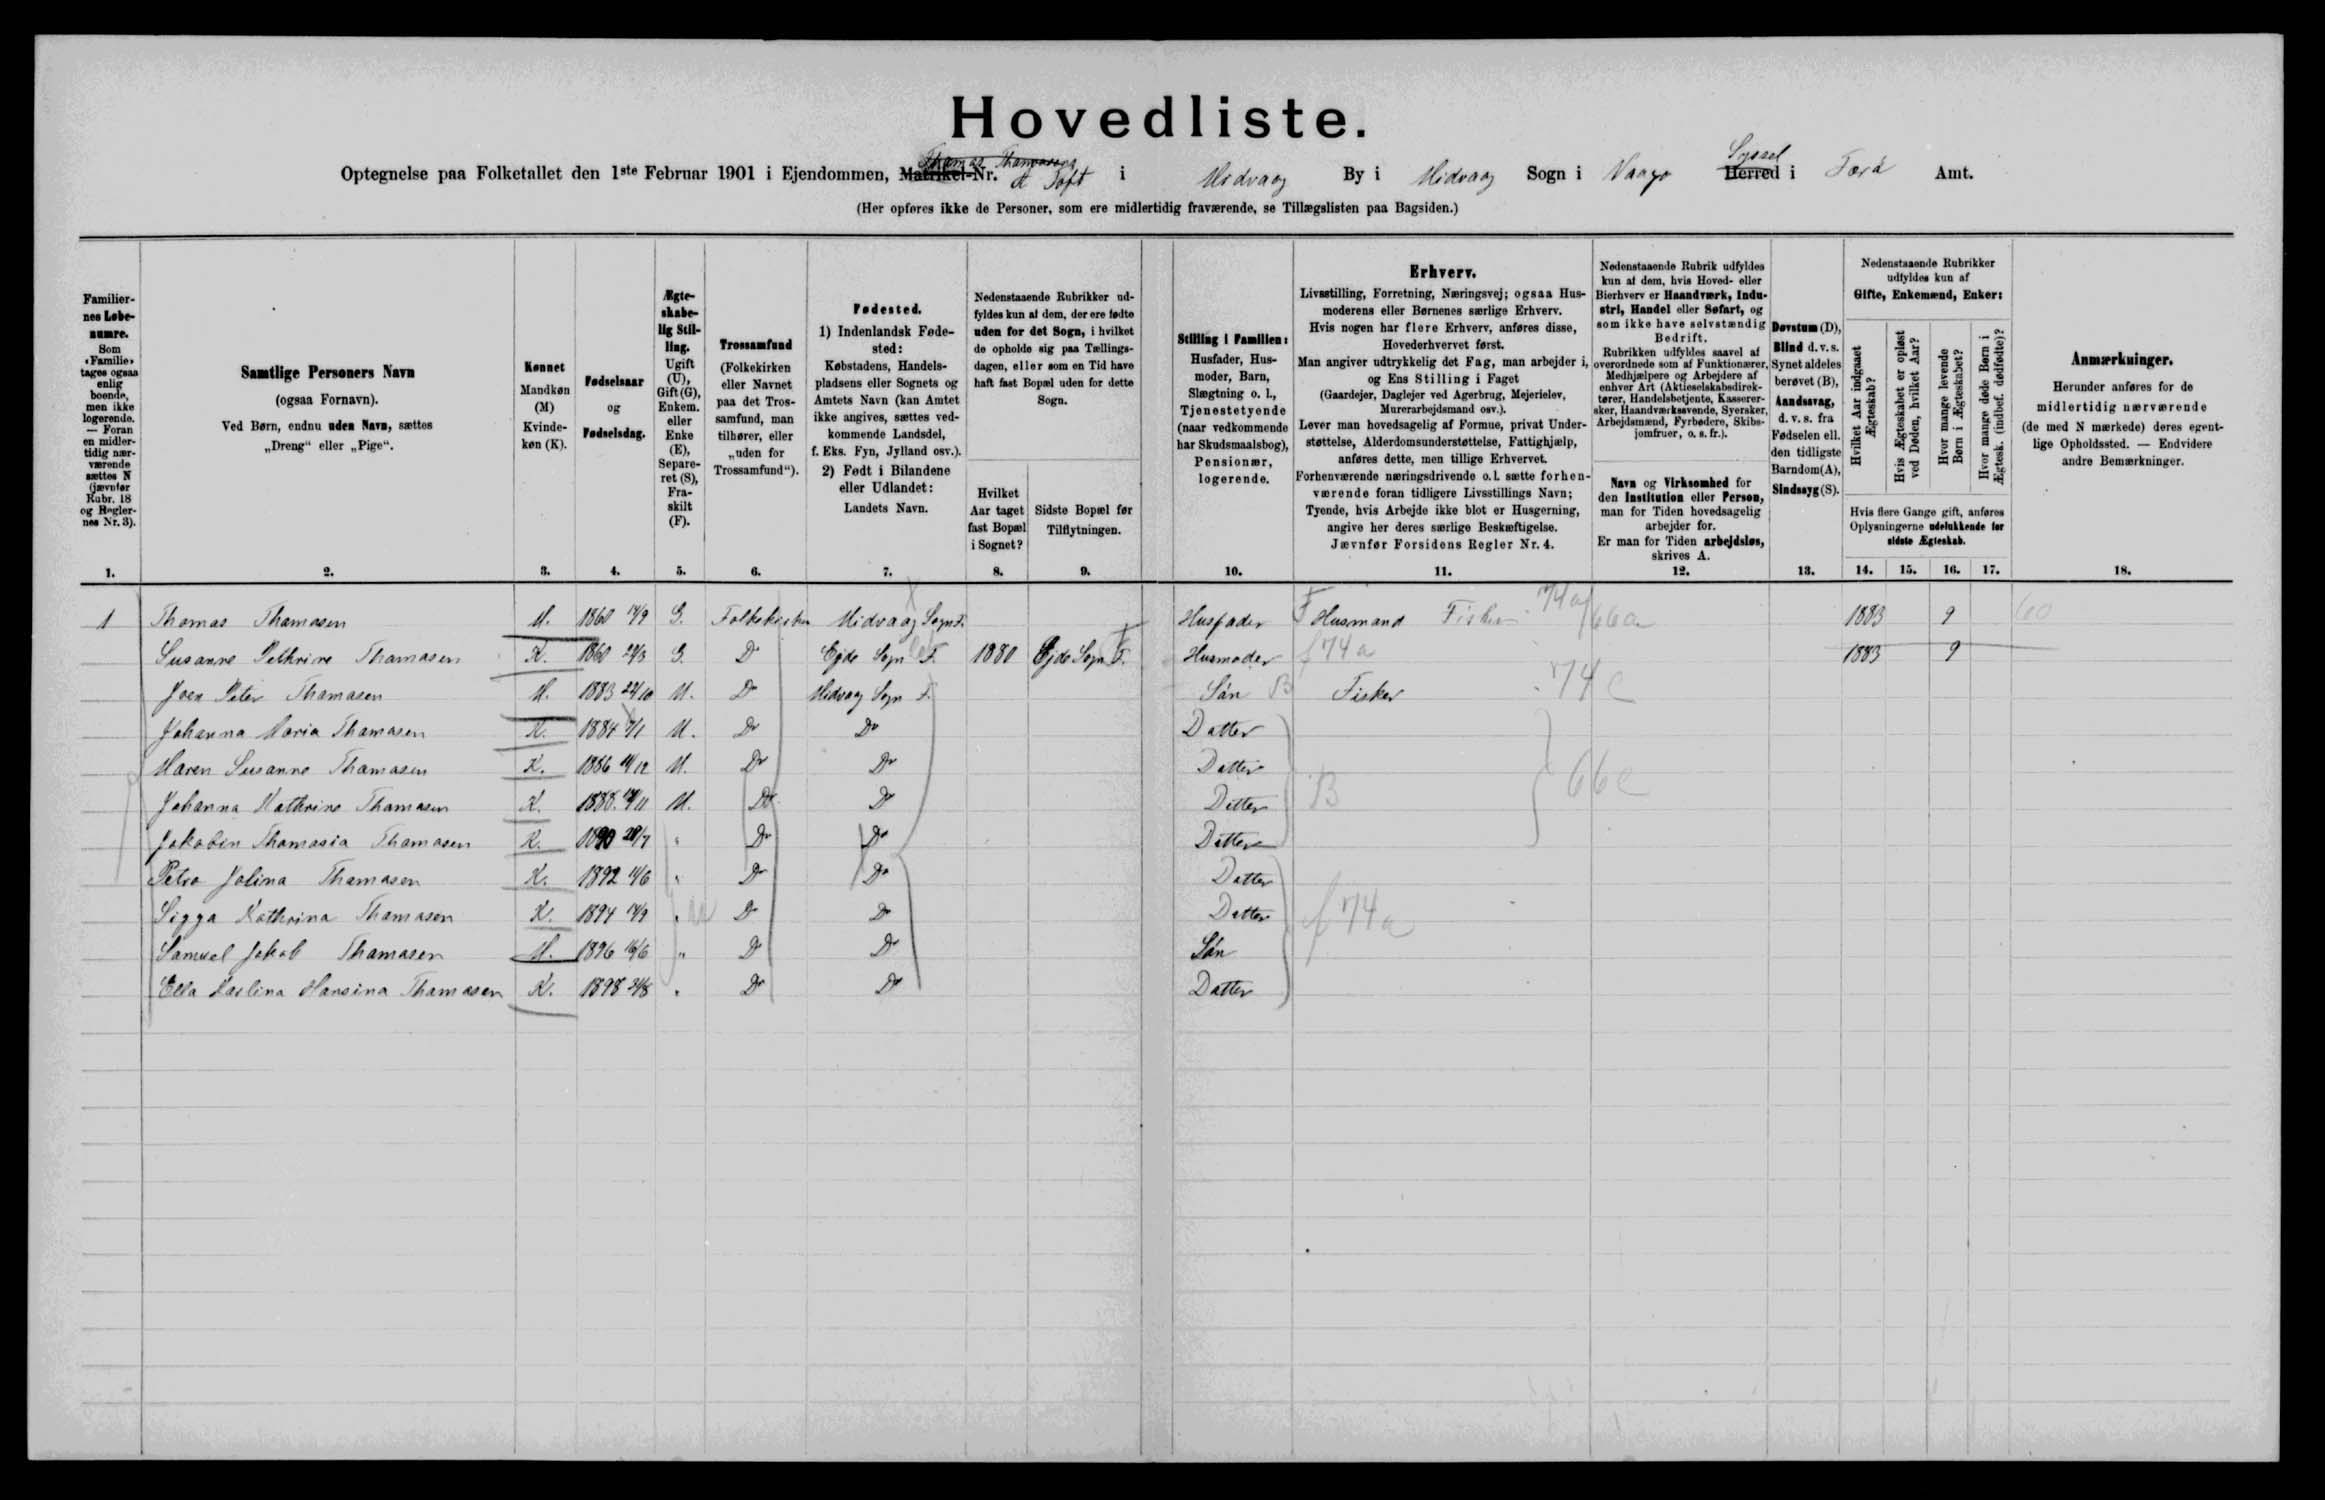 Hovedliste.
Thomas Thomasens
Optegnelse paa Folketallet den 1ste Februar 1901 i Ejendommen, Matrikel-Nr. A Toft i Midvaag By i Midvaag Sogn i Vaagø Herred Syssel i Færø Amt.
(Her opføres ikke de Personer, som ere midlertidig fraværende, se Tillægslisten paa Bagsiden.)
Familiernes Løbenumre. Som «Familie» tages ogsaa enlig boende, men ikke logerende. — Foran en midlertidig nærværende sættes N (jævnfør Rubr. 18 og Reglernes Nr. 3).
Samtlige Personers Navn (ogsaa Fornavn). Ved Børn, endnu uden Navn, sættes „Dreng“ eller „Pige“.
Kønnet Mandkøn (M) Kvindekøn (K).
Fødselsaar og Fødselsdag.
Ægteskabelig Stilling. Ugift (U), Gift (G), Enkem. eller Enke (E), Separeret (S), Fraskilt (F).
Trossamfund (Folkekirken eller Navnet paa det Trossamfund, man tilhører, eller „uden for Trossamfund“).
Fødested. 1) Indenlandsk Fødested: Købstadens, Handelspladsens eller Sognets og Amtets Navn (kan Amtet ikke angives, sættes vedkommende Landsdel, f. Eks. Fyn, Jylland osv.). 2) Født i Bilandene eller Udlandet: Landets Navn.
Nedenstaaende Rubrikker udfyldes kun af dem, der ere fødte uden for det Sogn, i hvilket de opholde sig paa Tællingsdagen, eller som en Tid have haft fast Bopæl uden for dette Sogn.
Hvilket Aar taget fast Bopæl i Sognet?
Sidste Bopæl før Tilflytningen.
Stilling i Familien: Husfader, Husmoder, Barn, Slægtning o. l., Tjenestetyende (naar vedkommende har Skudsmaalsbog), Pensionær, logerende.
Erhverv.
Livsstilling, Forretning, Næringsvej; ogsaa Husmoderens eller Børnenes særlige Erhverv.
Hvis nogen har flere Erhverv, anføres disse, Hovederhvervet først.
Man angiver udtrykkelig det Fag, man arbejder i, og Ens Stilling i Faget
(Gaardejer, Daglejer ved Agerbrug, Mejerielev, Murerarbejdsmand osv.).
Lever man hovedsagelig af Formue, privat Understøttelse, Alderdomsunderstøttelse, Fattighjælp, anføres dette, men tillige Erhvervet.
Forhenværende næringsdrivende o. l. sætte forhenværende foran tidligere Livsstillings Navn;
Tyende, hvis Arbejde ikke blot er Husgerning, angive her deres særlige Beskæftigelse.
Jævnfør Forsidens Regler Nr. 4.
Nedenstaaende Rubrik udfyldes kun af dem, hvis Hoved- eller Bierhverv er Haandværk, Industri, Handel eller Søfart, og som ikke have selvstændig Bedrift.
Rubrikken udfyldes saavel af overordnede som af Funktionærer, Medhjælpere og Arbejdere af enhver Art (Aktieselskabsdirektører, Handelsbetjente, Kasserersker, Haandværkssvende, Syersker, Arbejdsmænd, Fyrbødere, Skibsjomfruer, o. s. fr.).
Navn og Virksomhed for den Institution eller Person, man for Tiden hovedsagelig arbejder for.
Er man for Tiden arbejdsløs, skrives A.
Døvstum (D), Blind d. v. s. Synet aldeles berøvet (B), Aandssvag, d. v. s. fra Fødselen ell. den tidligste Barndom (A), Sindssyg (S).
Nedenstaaende Rubrikker udfyldes kun af Gifte, Enkemænd, Enker:
Hvilket Aar indgaaet Ægteskab?
Hvis Ægteskabet er opløst ved Døden, hvilket Aar?
Hvor mange levende Børn i Ægteskabet?
Hvor mange døde Børn i Ægtesk. (indbef. dødfødte)?
Hvis flere Gange gift, anføres Oplysningerne udelukkende for sidste Ægteskab.
Anmærkninger. Herunder anføres for de midlertidig nærværende (de med N mærkede) deres egentlige Opholdssted. — Endvidere andre Bemærkninger.
1. 2. 3. 4. 5. 6. 7. 8. 9. 10. 11. 12. 13. 14. 15. 16. 17. 18.
1 Thomas Thomasen M. 1860 14/9 G. Folkekirken Midvaag Sogn F. Husfader Husmand Fisker 74a 66a 1883 9 60
Susanne Pethrine Thomasen K. 1860 G. Do Ejde Sogn F. 1880 Ejde Sogn F. Husmoder f74a 1883 9
Joen Peter Thomasen M. 1883 22/10 U. Do Midvaag Sogn F. Søn B Fisker 74c
Johanna Maria Thomasen K. 1884 U. Do Do Datter
Maren Susanne Thomasen K. 1886 U. Do Do Datter
Johanna Kathrine Thomasen K. 1888 U. Do Do Datter B 66c
Jakobin Thomasia Thomasen K. 1890 28/7 " Do Do Datter
Petra Jolina Thomasen K. 1892 " Do Do Datter
Sigga Kathrina Thomasen K. 1894 14/9 " Do Do Datter f74a
Samuel Jakob Thomasen M. 1896 16/6 " Do Do Søn
Ella Karlina Hansina Thomasen K. 1898 24/8 " Do Do Datter